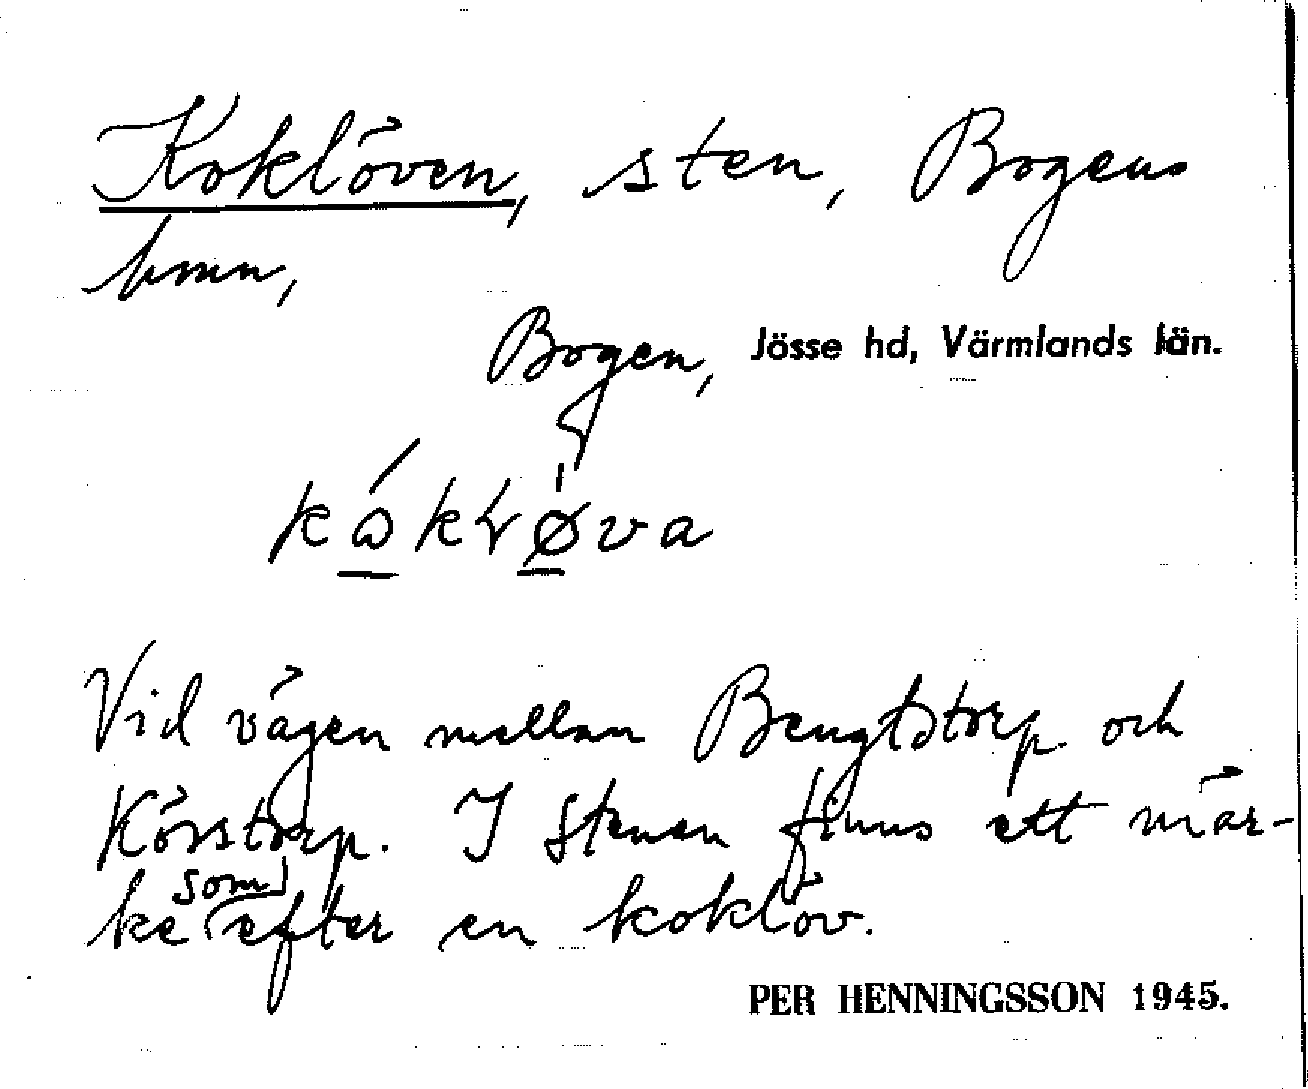 Koklöven, sten, Bogens
hmn,
Bogen, Jösse hd, Värmlands län.
Vid vägen mellan Bengtstorp och
Körstorp. I stenen finns ett mär-
ke som efter en koklöv.
PER HENNINGSSON 1945.